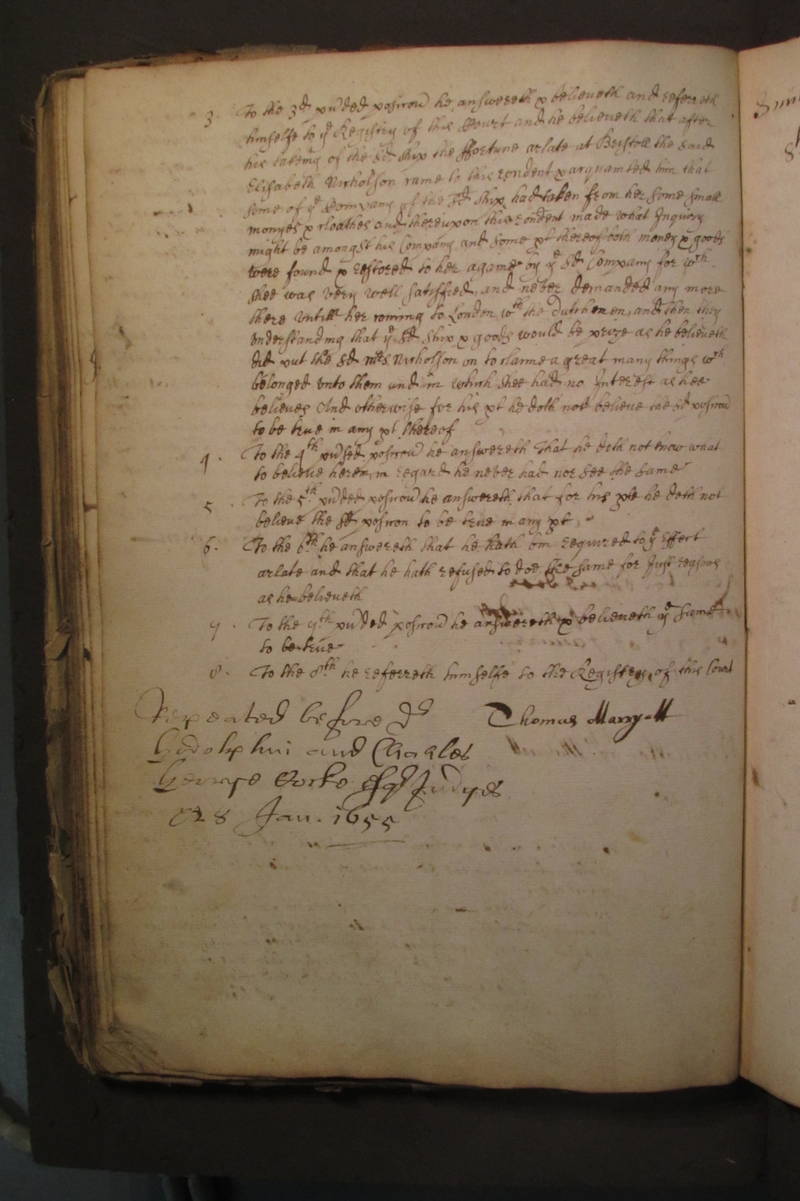 3. To the 3d p'nded posicon he answereth & believeth and referreth
himselfe to ye Registry of this Court and he believeth that after
his takeing of the sd ship the ffortune arlate at Bristoll the said
Elizabeth Nicholson came to this rendent & acquainted him that
some of ye Company of the sd ship had taken from her some small
monyes & cloathes and thereupon this rendent made what Inquiry
might be amongst his Company and some pt thereof both money & goods
were found & restored to her againe by ye sd Company for wch
shee was very well satisfied and never demanded any more
there untill her coming to London wth the Dutchmen, and then they
understanding that ye sd ship & goods would be prize as he believeth
did put the sd Mrs Nicholson on to clayme a great many things wch
belonged unto them and in which shee had no Interest as hee
believes And otherwise for his pt he doth not believe the sd posicon
to be true in any pt thereof
4. To the 4th p'nded posicon he answereth that he doth not know what
to believe herein in regard he never had nor see the same
5 To the 5th p'nded posicon he answereth that for his pte he doth not
believe the sd posicon to be true in any pt
6. To the 6th he answereth that he hath bin required to ye effect
arlate and that he hath refused to doe the same for Just reasons
as he believeth
7. To the 7th p'nded posicon he answereth & believeth ye same
to be true
8. To the 8th he referreth himselfe to the Registry of this Court
Repeated before Drs Thomas Marryott
Godolphin and Charles
George Cocke Esqr Judges
28 Jan. 1655